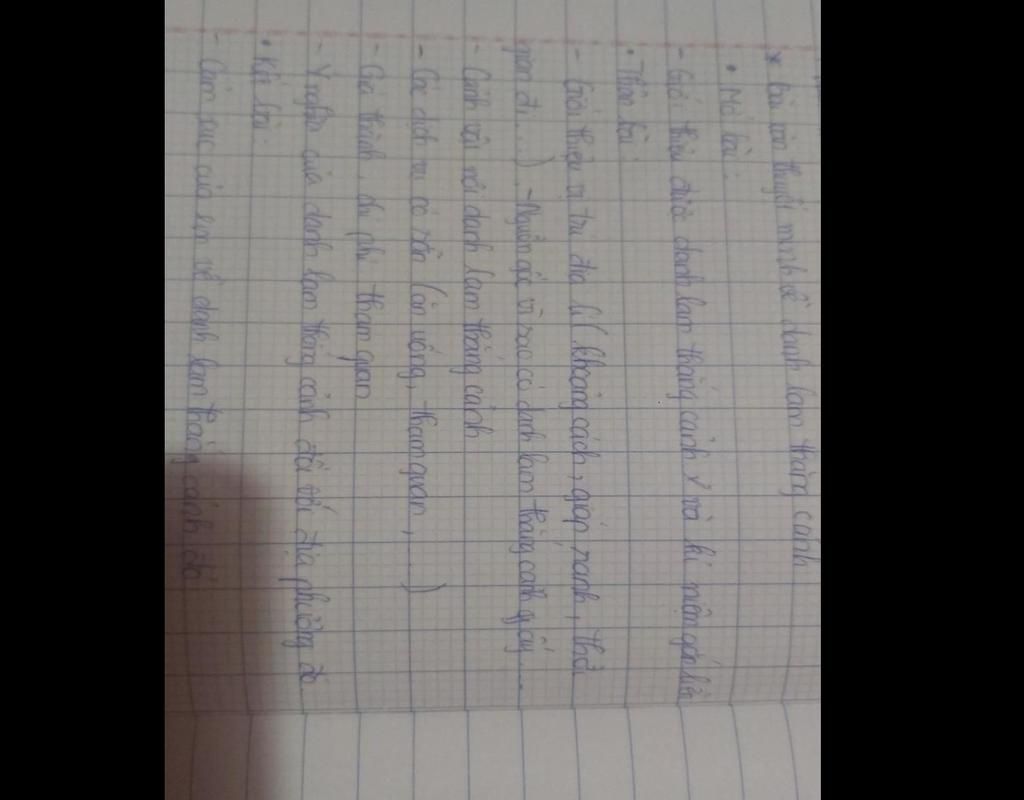 * Bài văn thuyết minh về danh lam thắng cảnh
• Mở bài:
- Giới thiệu được danh lam thắng cảnh và kỉ niệm gắn liền
• Thân bài:
- Giới thiệu vị trí địa lí (khoảng cách, giáp ranh, thời
gian đi,...) - Nguồn gốc vì sao có danh lam thắng cảnh ấy....
- Cảnh vật nơi danh lam thắng cảnh
- Các dịch vụ có sẵn (ăn uống, tham quan,......)
- Giá thành, chi phí tham quan
- Ý nghĩa của danh lam thắng cảnh đối với địa phương đó.
• Kết bài:
- Cảm xúc của em về danh lam thắng cảnh đó